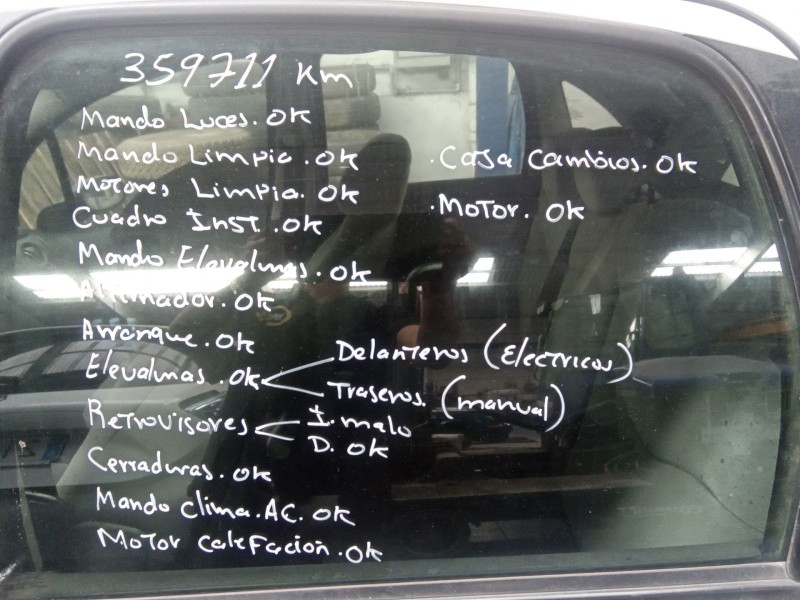 359711 Km
Mando Luces. OK
Mando Limpia. OK
Motores Limpia. OK
Cuadro Inst. OK
Mando Elevalunas. OK
Alternador. OK
Arranque. OK
Elevalunas. OK
Delanteros (Electricos)
Traseros. (manual)
Retrovisores
I. malo
D. OK
Cerraduras. OK
Mando clima. AC. OK
Motor Calefacion. OK
. Caja Cambios. OK
. Motor. OK